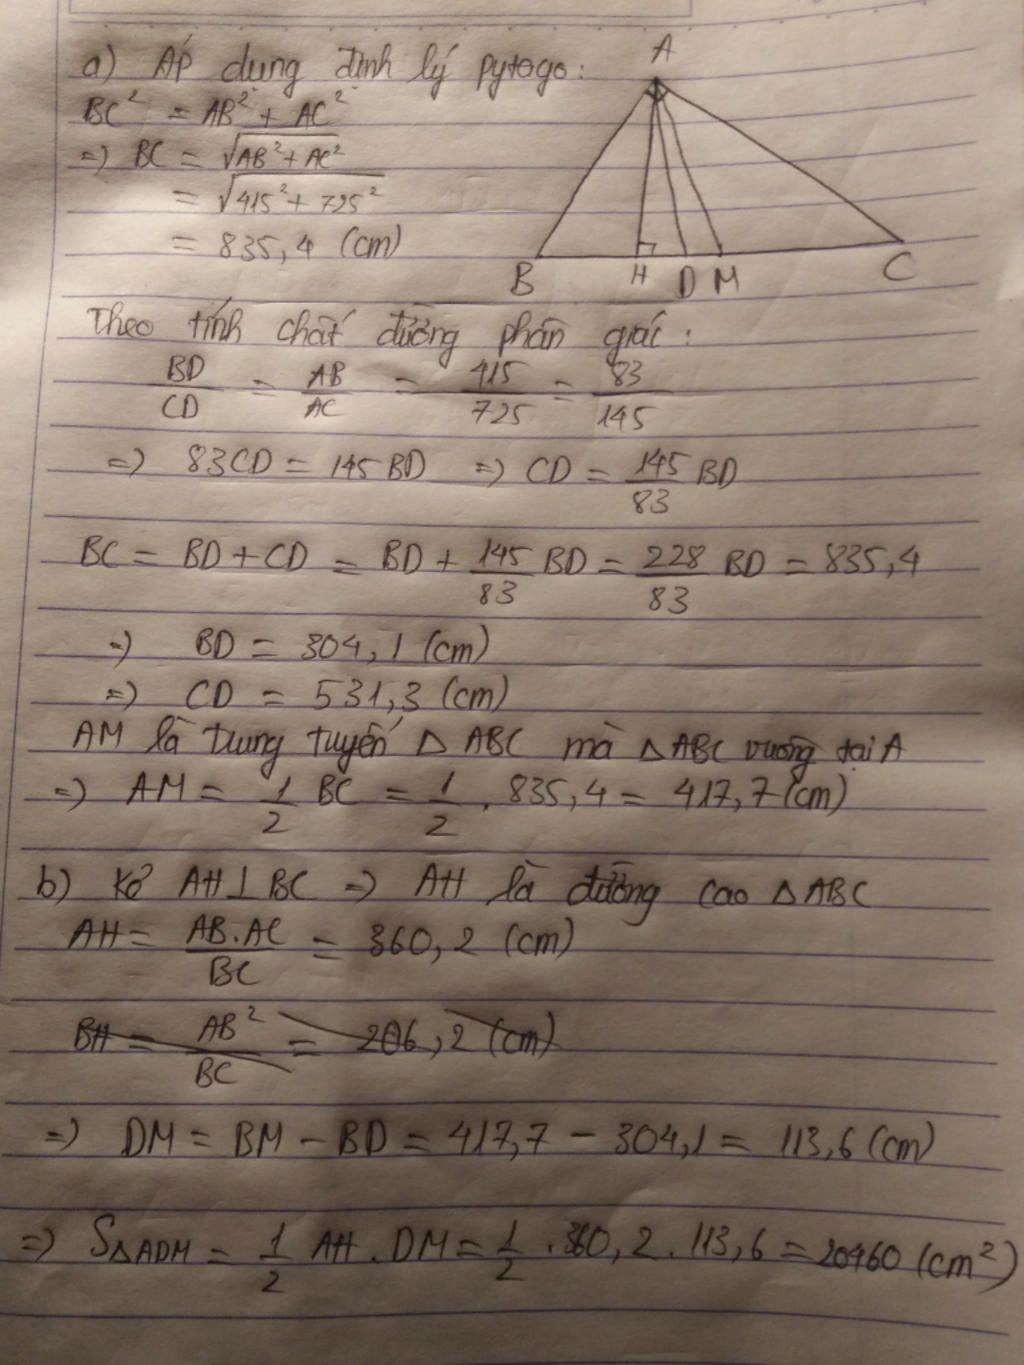 a) Áp dụng định lý pytago:
BC² = AB² + AC²
=> BC = √AB² + AC²
= √415² + 725²
= 835,4 (cm)
A
B H D M C
Theo tính chất đường phân giác:
BD/CD = AB/AC = 415/725 = 83/145
=> 83CD = 145BD => CD = 145/83 BD
BC = BD + CD = BD + 145/83 BD = 228/83 BD = 835,4
=> BD = 304,1 (cm)
=> CD = 531,3 (cm)
AM là trung tuyến Δ ABC mà Δ ABC vuông tại A
=> AM = 1/2 BC = 1/2 . 835,4 = 417,7 (cm)
b) Kẻ AH ⊥ BC => AH là đường cao Δ ABC
AH = AB.AC/BC = 360,2 (cm)
BH = AB²/BC = 206,2 (cm)
=> DM = BM - BD = 417,7 - 304,1 = 113,6 (cm)
=> SΔADM = 1/2 AH . DM = 1/2 . 360,2 . 113,6 = 20460 (cm²)